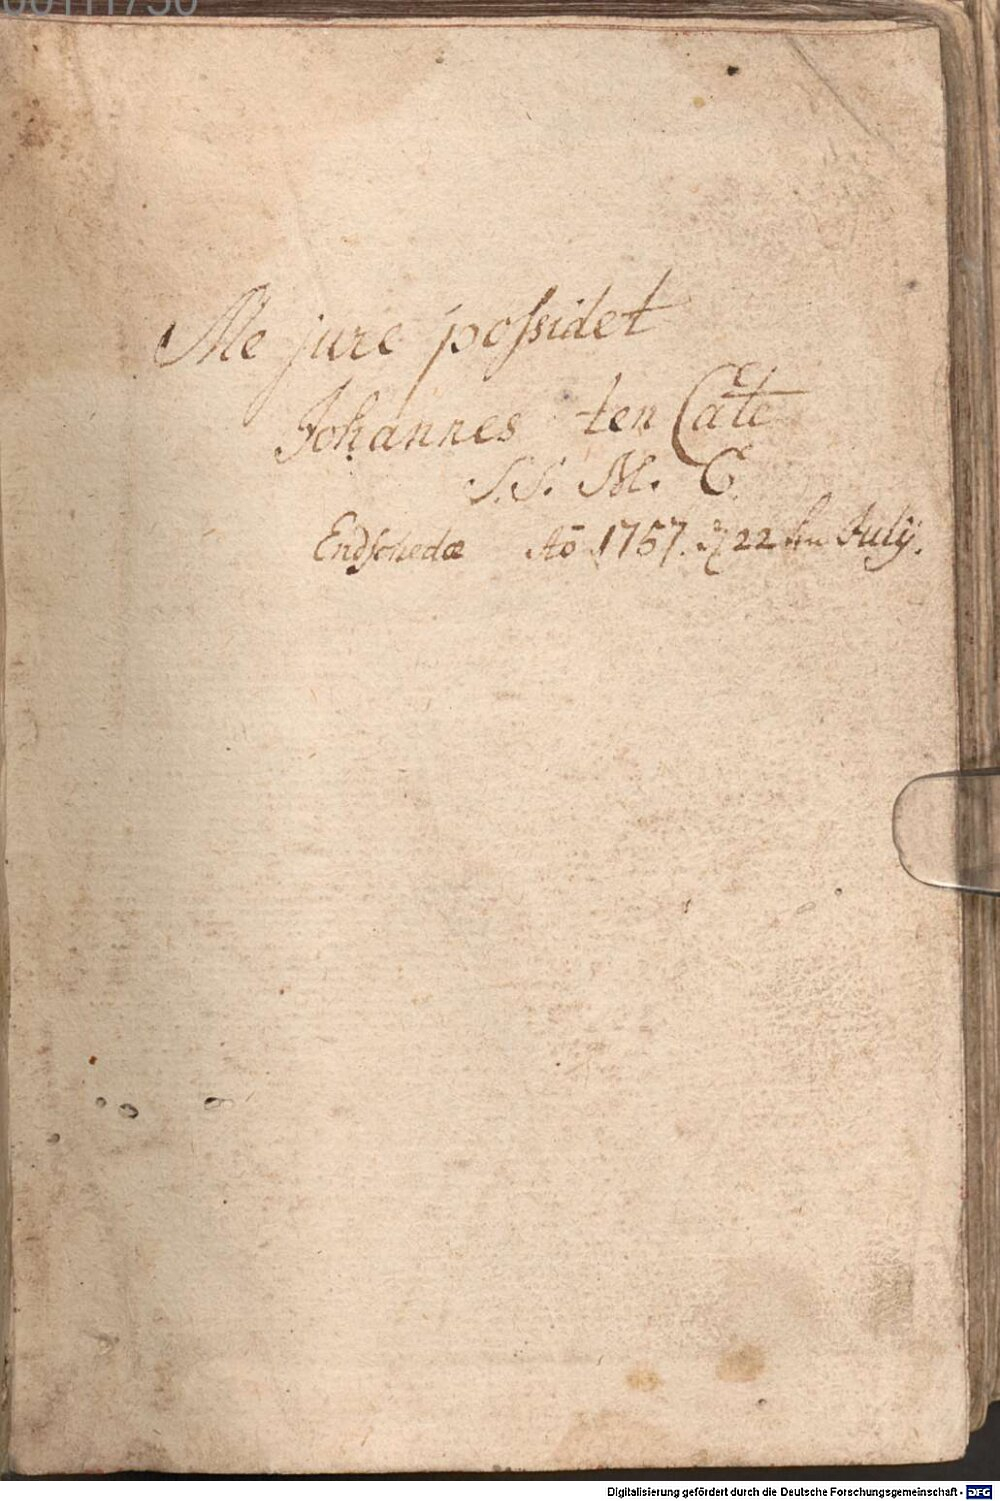 Me jure possidet
Johannes ten Cate
S. S. M. C.
Endschedæ Aō 1757. 22 July.
Digitalisierung gefördert durch die Deutsche Forschungsgemeinschaft - DFG